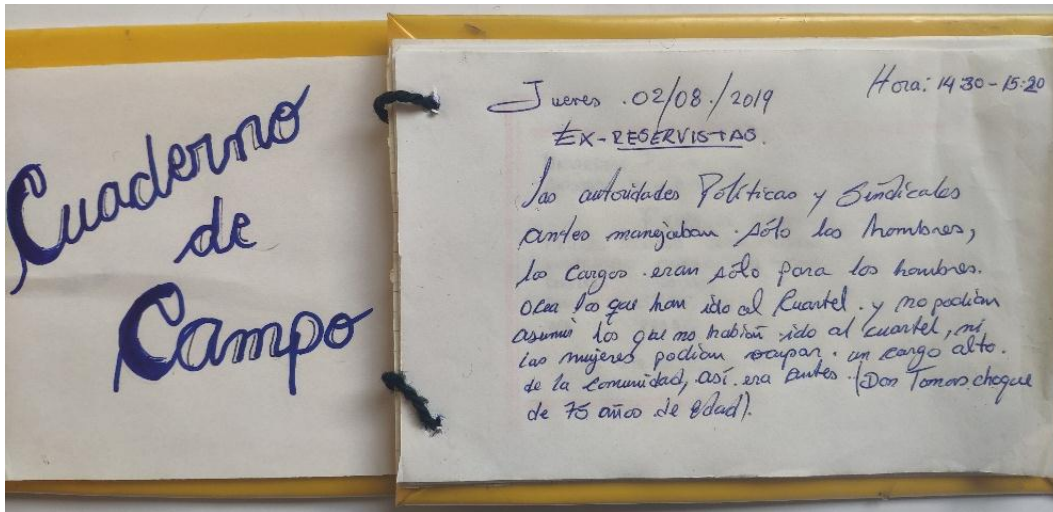 Cuaderno
de
Campo
Jueves 02/08/2019
Hora: 14:30-15:20
EX-RESERVISTAS.
las autoridades Políticas y Sindicales
antes manejaban sólo los hombres,
los cargos eran sólo para los hombres.
osea los que han ido al Kuartel. y no podian
asumir los que no habian ido al cuartel, ni
las mujeres podian ocupar un cargo alto.
de la comunidad, así era antes. (Don Tomas choque
de 75 años de edad).